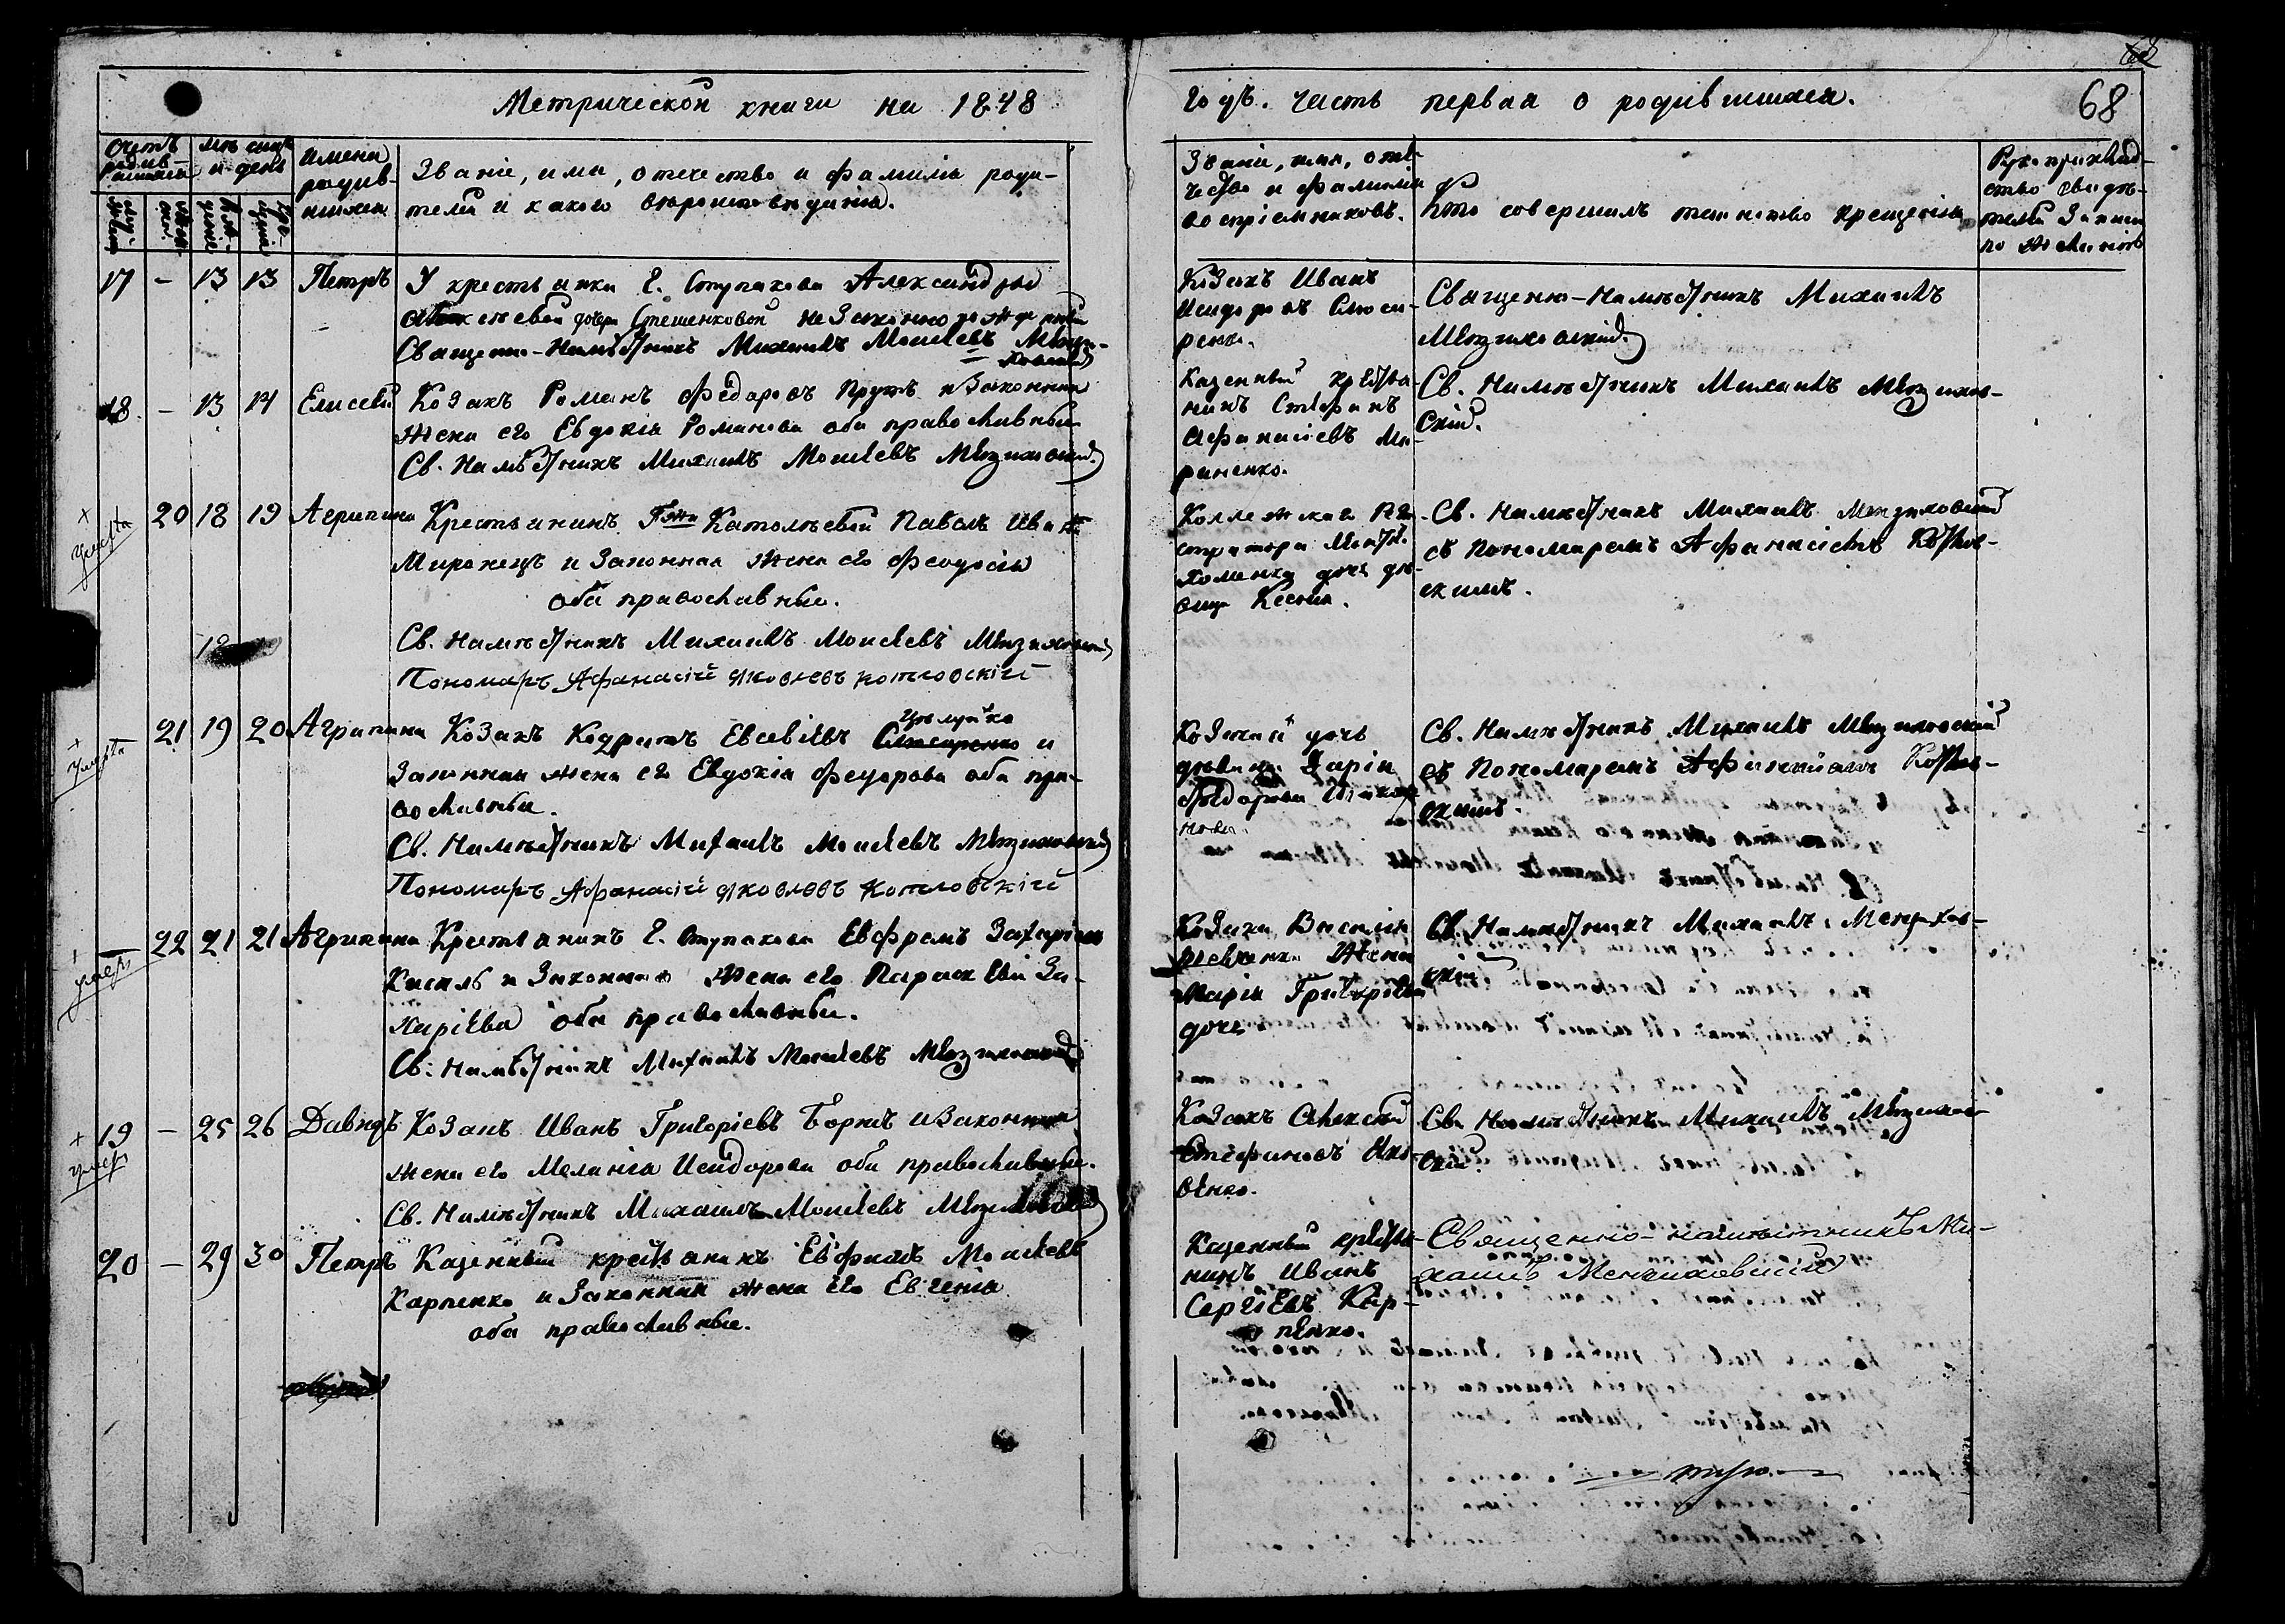 68
Метрической книги на 1848
годъ. Часть первая о родившихся.
68
Счетъ родив-шихся
Мѣсяцъ и день
Имена родив-шихся
Званіе, имя, отечество и фамилія роди-
телей и какого вѣроисповѣданія.
Званіе, имя, оте-
чество и фамилія
воспріемниковъ.
Кто совершалъ таинство крещенія
Рукоприклад-
ство свидѣ-
телей записи
по желанію
17 – 13 13 Петръ У крестьянки Г. Ступакова Александры
дочери Стешенковой незаконно рожденный
Священно-Намѣстникъ Михаилъ Моисеевъ Мензи-
ховскій
Козакъ Иванъ
Исидоровъ Слюса-
ренко.
Священно-Намѣстникъ Михаилъ
Мензиховскій
18. – 13 14 Елисей Козакъ Романъ Федоровъ Пругъ и законная
жена его Евдокія Романова оба православные
Св. Намѣстникъ Михаилъ Моисеевъ Мензиховскій
Казенный крестья-
нинъ Стефанъ
Афанасіевъ Ма-
риненко.
Св. Намѣстникъ Михаилъ Мензихов-
скій.
умерла
20 18 19 Агрипина Крестьянинъ Гжи Католѣевой Павелъ Иванъ
Миронецъ и законная жена его Феодосія
оба православные.
Св. Намѣстникъ Михаилъ Моисеевъ Мензиховскій
Пономарь Афанасій Яковлевъ Котловскій
Коллежскаго Реги-
стратора
Хоменка дочь дѣ-
вица Ксенія.
Св. Намѣстникъ Михаилъ Мензиховскій
съ Пономаремъ Афанасіемъ Котлов-
скимъ.
18
умерла
21 19 20 Агрипина Козакъ Кодратъ Евсевіевъ Слюсаренко и
Цѣлуйко
законная жена его Евдокія Федорова оба пра-
вославные.
Св. Намѣстникъ Михаилъ Моисеевъ Мензиховскій
Пономарь Афанасій Яковлевъ Котловскій
Козачья дочь
дѣвица Дарія
Федорова
нова.
Св. Намѣстникъ Михаилъ Мензиховскій
съ Пономаремъ Афанасіемъ Котлов-
скимъ.
умер
22 21 21 Агрипина Крестьянинъ Г. Ступакова Евфремъ Захаріевъ
Кисиль и законная жена его Параскевія За-
харіева оба православные.
Св. Намѣстникъ Михаилъ Моисеевъ Мензиховскій
Козака Василія
Шевченка жена
Марія Григоріева
дочь
Св. Намѣстникъ Михаилъ Мензихов-
скій
умер
19 – 25 26 Давидъ Козакъ Иванъ Григоріевъ Борщъ и законная
жена его Меланія Исидорова оба православные.
Св. Намѣстникъ Михаилъ Моисеевъ Мензиховскій
Козакъ Алексѣй
Стефановъ Яко-
венко.
Св. Намѣстникъ Михаилъ Мензихов-
скій.
20 – 29 30 Петръ Казенный крестьянинъ Евфимъ Моисеевъ
Карпенко и законная жена его Евгенія
оба православные.
Казенный крестья-
нинъ Иванъ
Сергіевъ Кар-
пенко.
Священно-намѣстникъ Ми-
хаилъ Мензиховскій